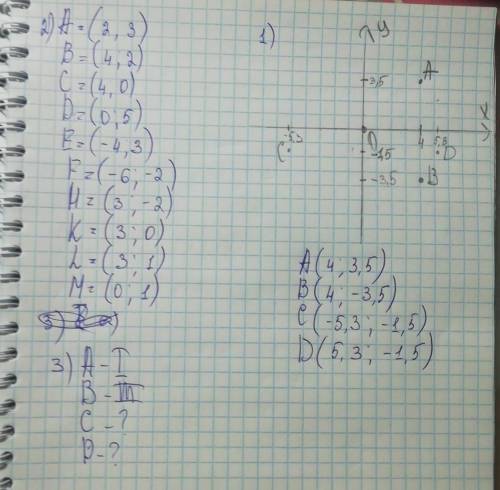 2) A = (2, 3)
B = (4; 2)
C = (4, 0)
D = (0; 5)
E = (-4, 3)
F = (-6; -2)
H = (3; -2)
K = (3; 0)
L = (3; 1)
M = (0; 1)
3) A - I
B - III
C - ?
D - ?
1)
y
x
3,5
A
-5,3
C
0
-1,5
4
5,3
D
-3,5
B
A (4; 3,5)
B (4; -3,5)
C (-5,3; -1,5)
D (5,3; -1,5)